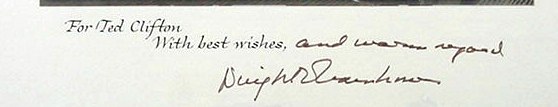 For Ted Clifton
With best wishes, and warm regard
Dwight D Eisenhower